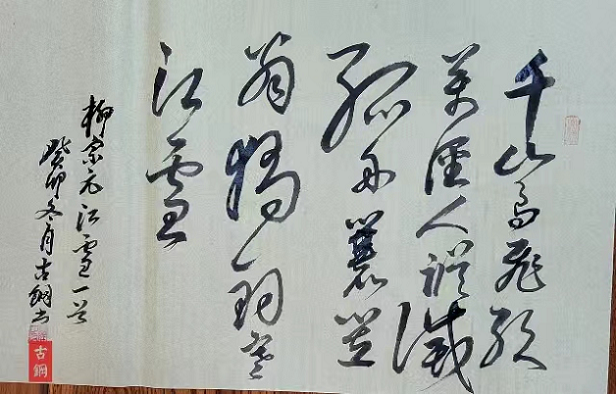 千山鳥飛絶
萬徑人蹤滅
孤舟蓑笠
翁獨釣寒
江雪
柳宗元江雪一首
癸卯冬月古鋼书
古鋼